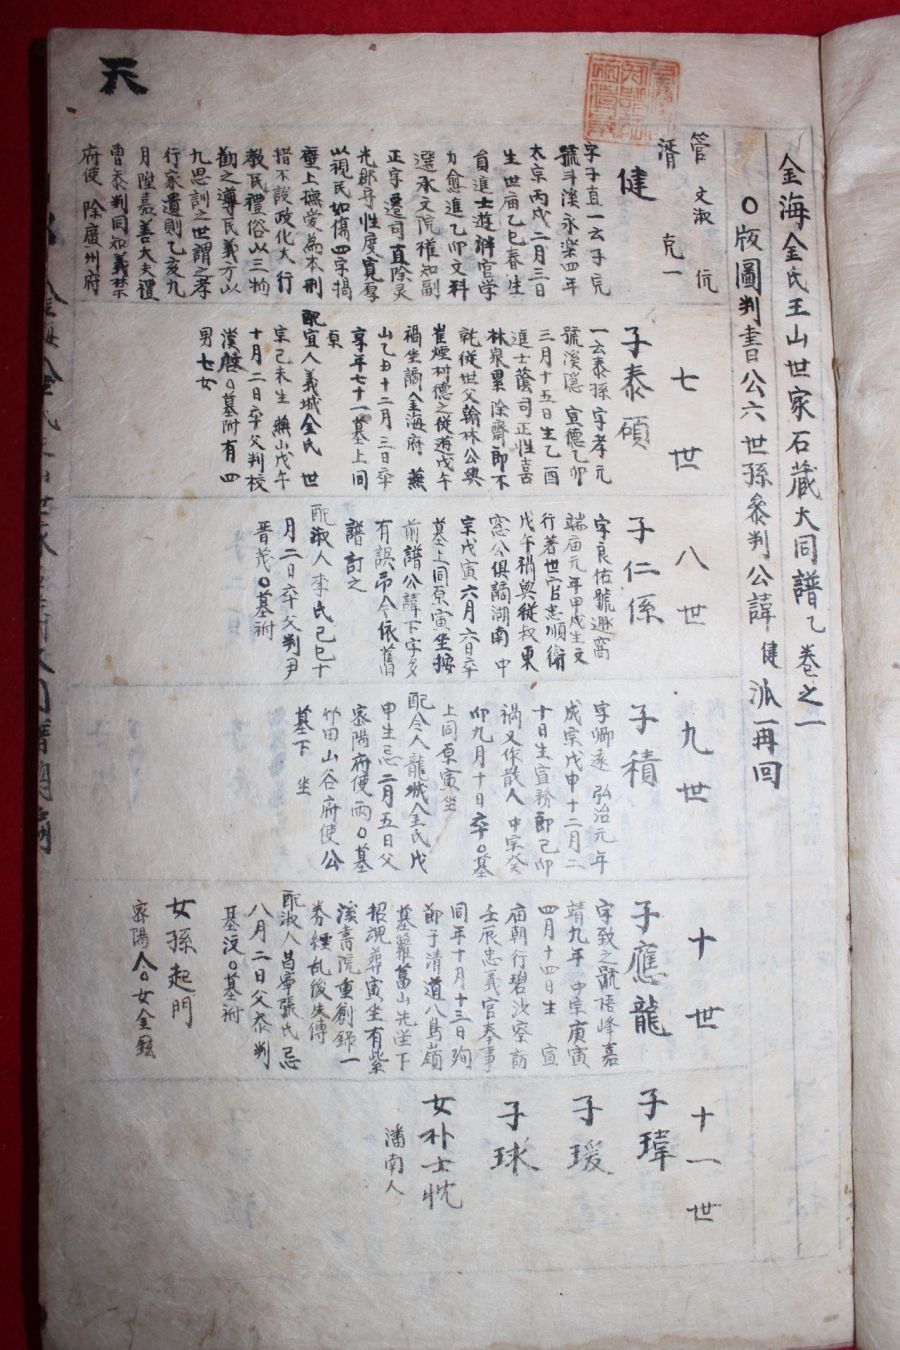 天
金海金氏王山世家石藏大同譜乙卷之一
〇版圖判書公六世孫參判公諱健派一再回
管 文淑 伉
濟 克一
健
字子直一云子元
號斗溪永楽四年
太宗丙戌二月三日
生世庙乙巳春生
員進士遊泮宮学
力愈進乙卯文科
選承文院權知副
正字遷司直除灵
光郡守性度寬厚
以視民如傷四字揭
壁上撫愛為本刑
措不設政化大行
教民禮俗以三物
勸之導民義方以
九思訓之世謂之孝
行家遺則乙亥九
月陞嘉善大夫禮
曹叅判同知義禁
府使 除廣州府
七世
子泰碩
一云泰孫 字孝元
號溪隱 宣德乙卯
三月十五日生乙酉
進士蔭司正性喜
林泉累除齋郎不
就從世父翰林公與
崔烟村德之從遊戊午
禍坐謫金海府 燕
山乙丑十二月三日卒
享年七十一墓上同
原
配宜人義城金氏 世
宗己未生 燕山戊午
十月二日卒父判校
漢啓〇墓附有四
男七女
八世
子仁係
字良佑號遯窩
端庙元年甲戌生文
行著世官忠順衛
戊午禍與從叔東
窓公俱謫湖南 中
宗戊寅六月六日卒
墓上同原寅坐按
前譜公諱下字多
有誤故今依舊
譜訂之
配淑人李氏己巳十
月二日卒父判尹
晋茂〇墓祔
九世
子積
字卿遠 弘治元年
成宗戊申十二月二
十日生宣務郎己卯
禍又作散人 中宗癸
卯九月十日卒〇墓
上同原寅坐
配令人龍城金氏戊
申生忌二月五日父
密陽府使両〇墓
竹田山谷府使公
墓下 坐
十世
子應龍
字致之號梧峰嘉
靖九年 中宗庚寅
四月十四日生 宣
庙朝行碧沙察訪
壬辰忠義官奉事
同年十月十三日殉
節于清道八鳥嶺
墓蘿葍山先塋下
招魂葬寅坐有紫
溪書院重創錄一
券經乱後失傳
配淑人昌寧張氏忌
八月二日父叅判
基浚〇墓祔
女孫起門
密陽人〇女金鉉
十一世
子瑋
子瑗
子球
女朴士忱
潘南人